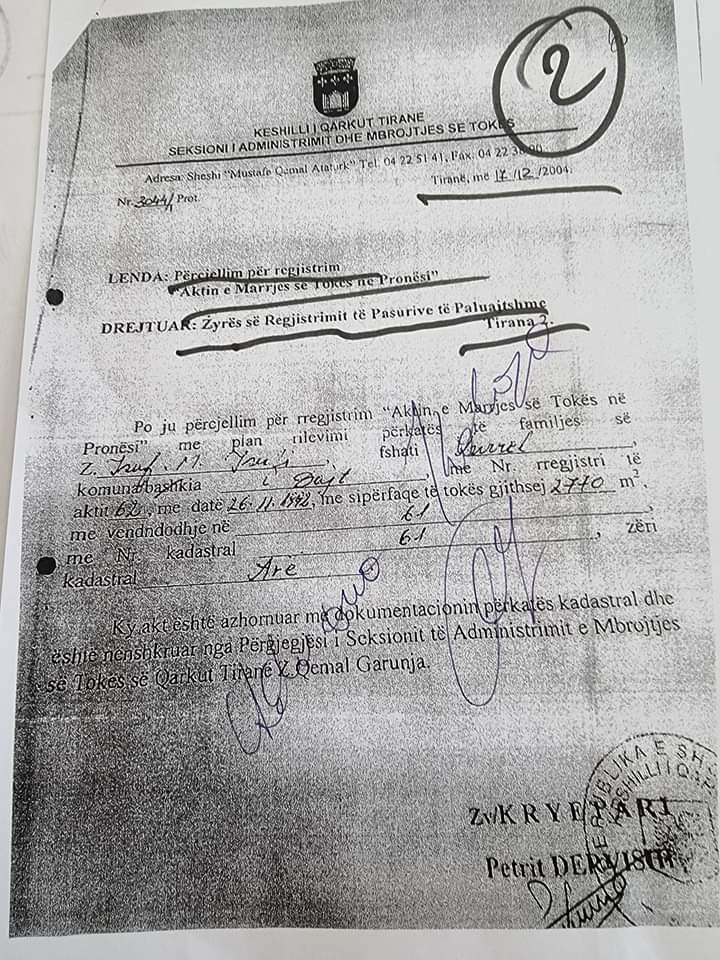 2
KESHILLI I QARKUT TIRANE
SEKSIONI I ADMINISTRIMIT DHE MBROJTJES SE TOKËS
Adresa: Sheshi "Mustafe Qemal Ataturk" Tel. 04 22 51 41, Fax. 04 22
Nr. 3044/1 Prot.
Tiranë, më 17/12/2004.
LENDA: Përcjellim për regjistrim
"Aktin e Marrjes së Tokës në Pronësi"
DREJTUAR: Zyrës së Regjistrimit të Pasurive të Paluajtshme
Tirana 2.
Po ju përcjellim për rregjistrim "Aktin e Marrjes së Tokës në
Pronësi" me plan rilevimi përkatës të familjes së
Z. Isuf. M. Isufi, fshati
komuna/bashkia Dajt, me Nr. rregjistri të
aktit 62, me datë 26.11.1992, me sipërfaqe të tokës gjithsej 2770 m²,
me vendndodhje në 61,
me Nr. kadastral 61, zëri
kadastral Arë
Ky akt është azhornuar me dokumentacionin përkatës kadastral dhe
është nënshkruar nga Përgjegjësi i Seksionit të Administrimit e Mbrojtjes
së Tokës së Qarkut Tiranë Z. Qemal Garunja.
Zv/KRYETARI
Petrit DERVISHI